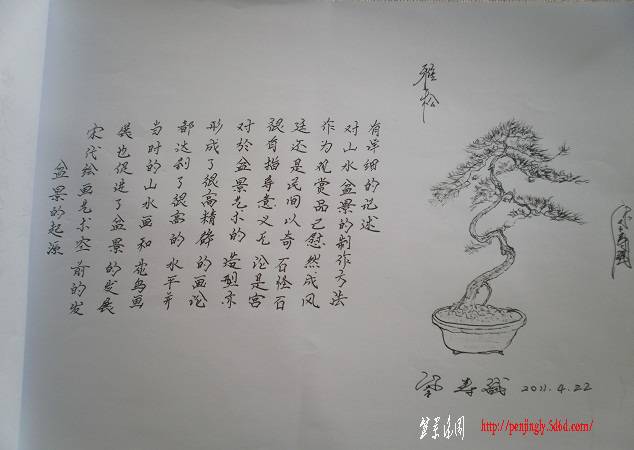 盆景的起源
宋代绘画艺术空前的发
展也促进了盆景的发展
当时的山水画和花鸟画
都达到了很高的水平并
形成了很高精辟的画论
对於盆景艺术的造型亦
很有指导意义无论是宫
廷还是民间以奇石怪石
作为观赏品已慰然成风
对山水盆景的制作方法
有详细的记述
雅松
2011.4.22
盆景
http://penjingly.5d6d.com/